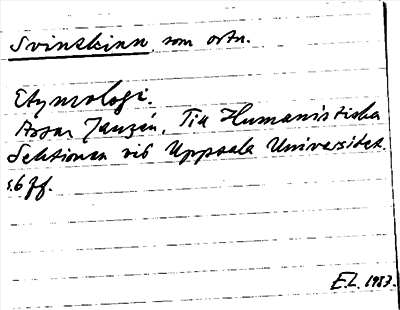 Svinskinn som ortn.
Etymologi.
Assar Janzén, Till Humanistiska
Sektionen vid Uppsala Universitet.
s. 6 ff.
E L. 1983.